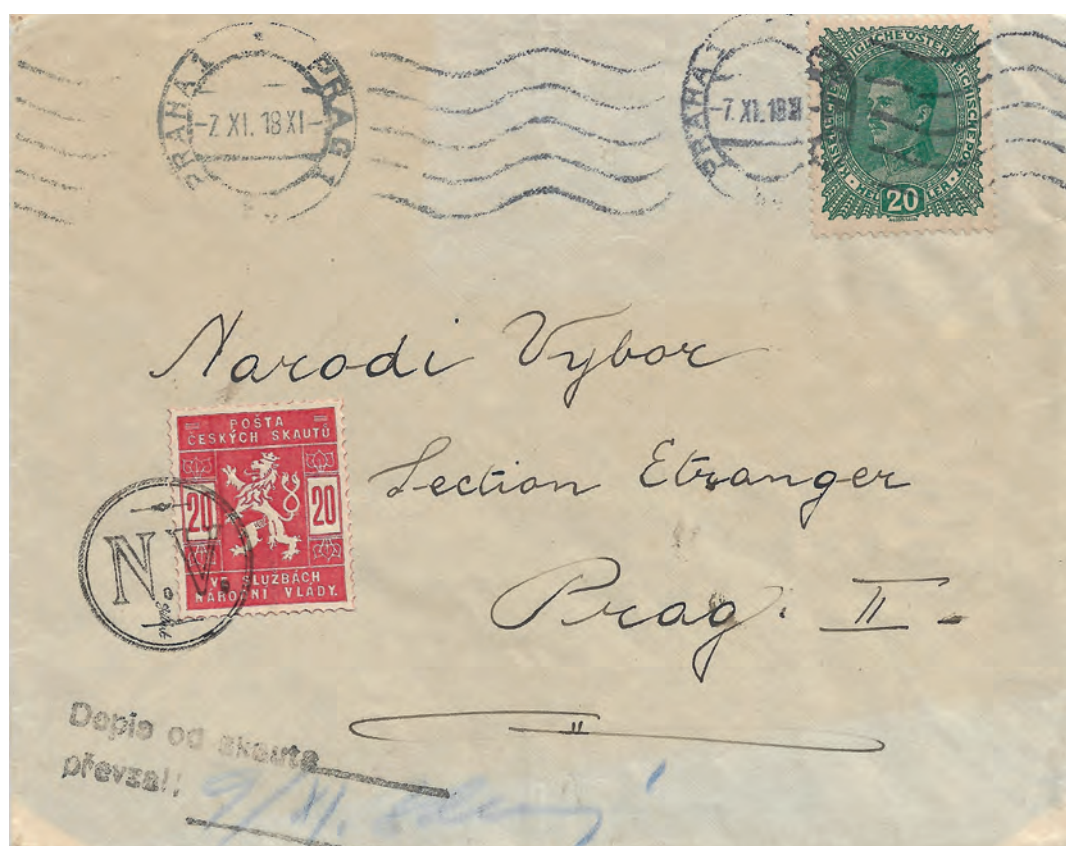 PRAHA 1 PRAG 1
-7. XI. 18 XI-
PRAHA 1
-7. XI. 18 XI
KAISERLICHE KÖNIGLICHE ÖSTERREICHISCHE POST
HELLER
20
Narodi Výbor
Section Etranger
Prag. II.
POŠTA
ČESKÝCH SKAUTŮ
20 20
VE SLUZBÁCH
NÁRODNÍ VLÁDY.
N.V.
Skaut
Dopis od skauta
převzal:
9/XI.